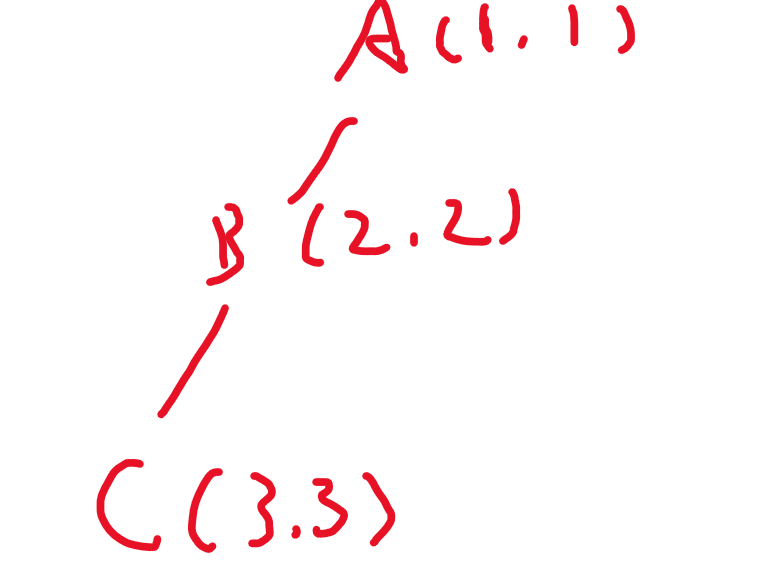 A(1.1)
B(2.2)
C(3.3)